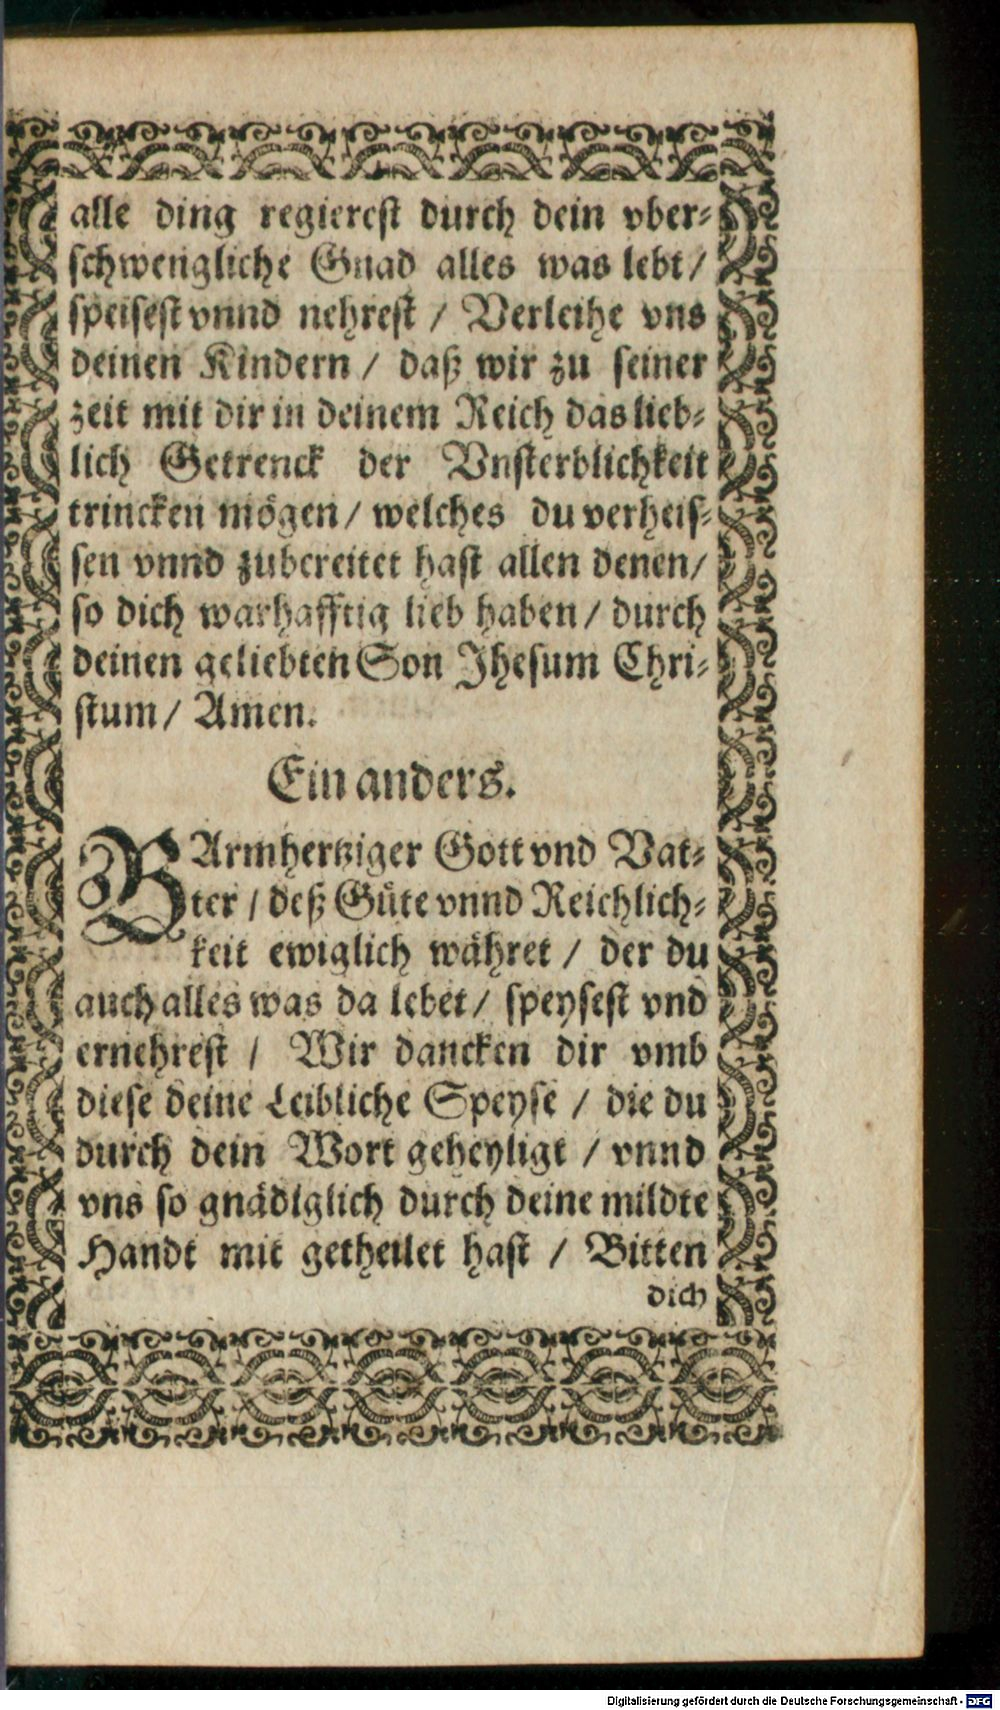 alle ding regierest durch dein vber⸗
schwengliche Gnad alles was lebt /
speisest vnnd nehrest / Verleihe vns
deinen Kindern / daß wir zu seiner
zeit mit dir in deinem Reich das lieb⸗
lich Getrenck der Vnsterblichkeit
trincken mögen / welches du verheis⸗
sen vnnd zubereitet hast allen denen /
so dich warhafftig lieb haben / durch
deinen geliebten Son Jhesum Chri⸗
stum / Amen.
Ein anders.
BArmhertziger Gott vnd Vat⸗
ter / deß Güte vnnd Reichlich⸗
keit ewiglich währet / der du
auch alles was da lebet / speysest vnd
ernehrest / Wir dancken dir vmb
diese deine Leibliche Speyse / die du
durch dein Wort geheyligt / vnnd
vns so gnädiglich durch deine mildte
Handt mit getheilet hast / Bitten
dich
Digitalisierung gefördert durch die Deutsche Forschungsgemeinschaft - DFG